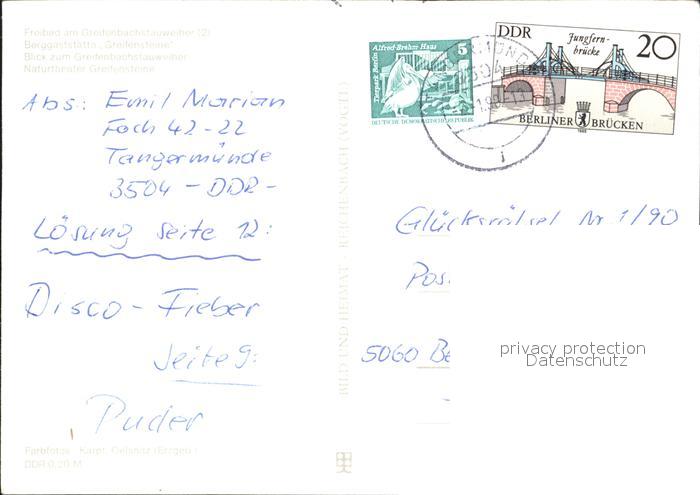 Freibad am Greifenbachstauweiher (2)
Berggaststätte „Greifensteine"
Blick zum Greifenbachstauweiher
Naturtheater Greifensteine
Abs: Emil Marian
Fach 42-22
Tangermünde
3504 - DDR -
Lösung Seite 12:
Disco - Fieber
Seite 9:
Puder
Farbfotos: Karpf, Oelsnitz (Erzgeb.)
DDR 0,20 M
BILD UND HEIMAT · REICHENBACH (VOGTL)
Tierpark Berlin
Alfred-Brehm Haus
5
DEUTSCHE DEMOKRATISCHE REPUBLIK
DDR
Jungfern-
brücke
20
BERLINER BRÜCKEN
Glücksrätsel Nr 1/90
Pos
5060 Be
privacy protection
Datenschutz